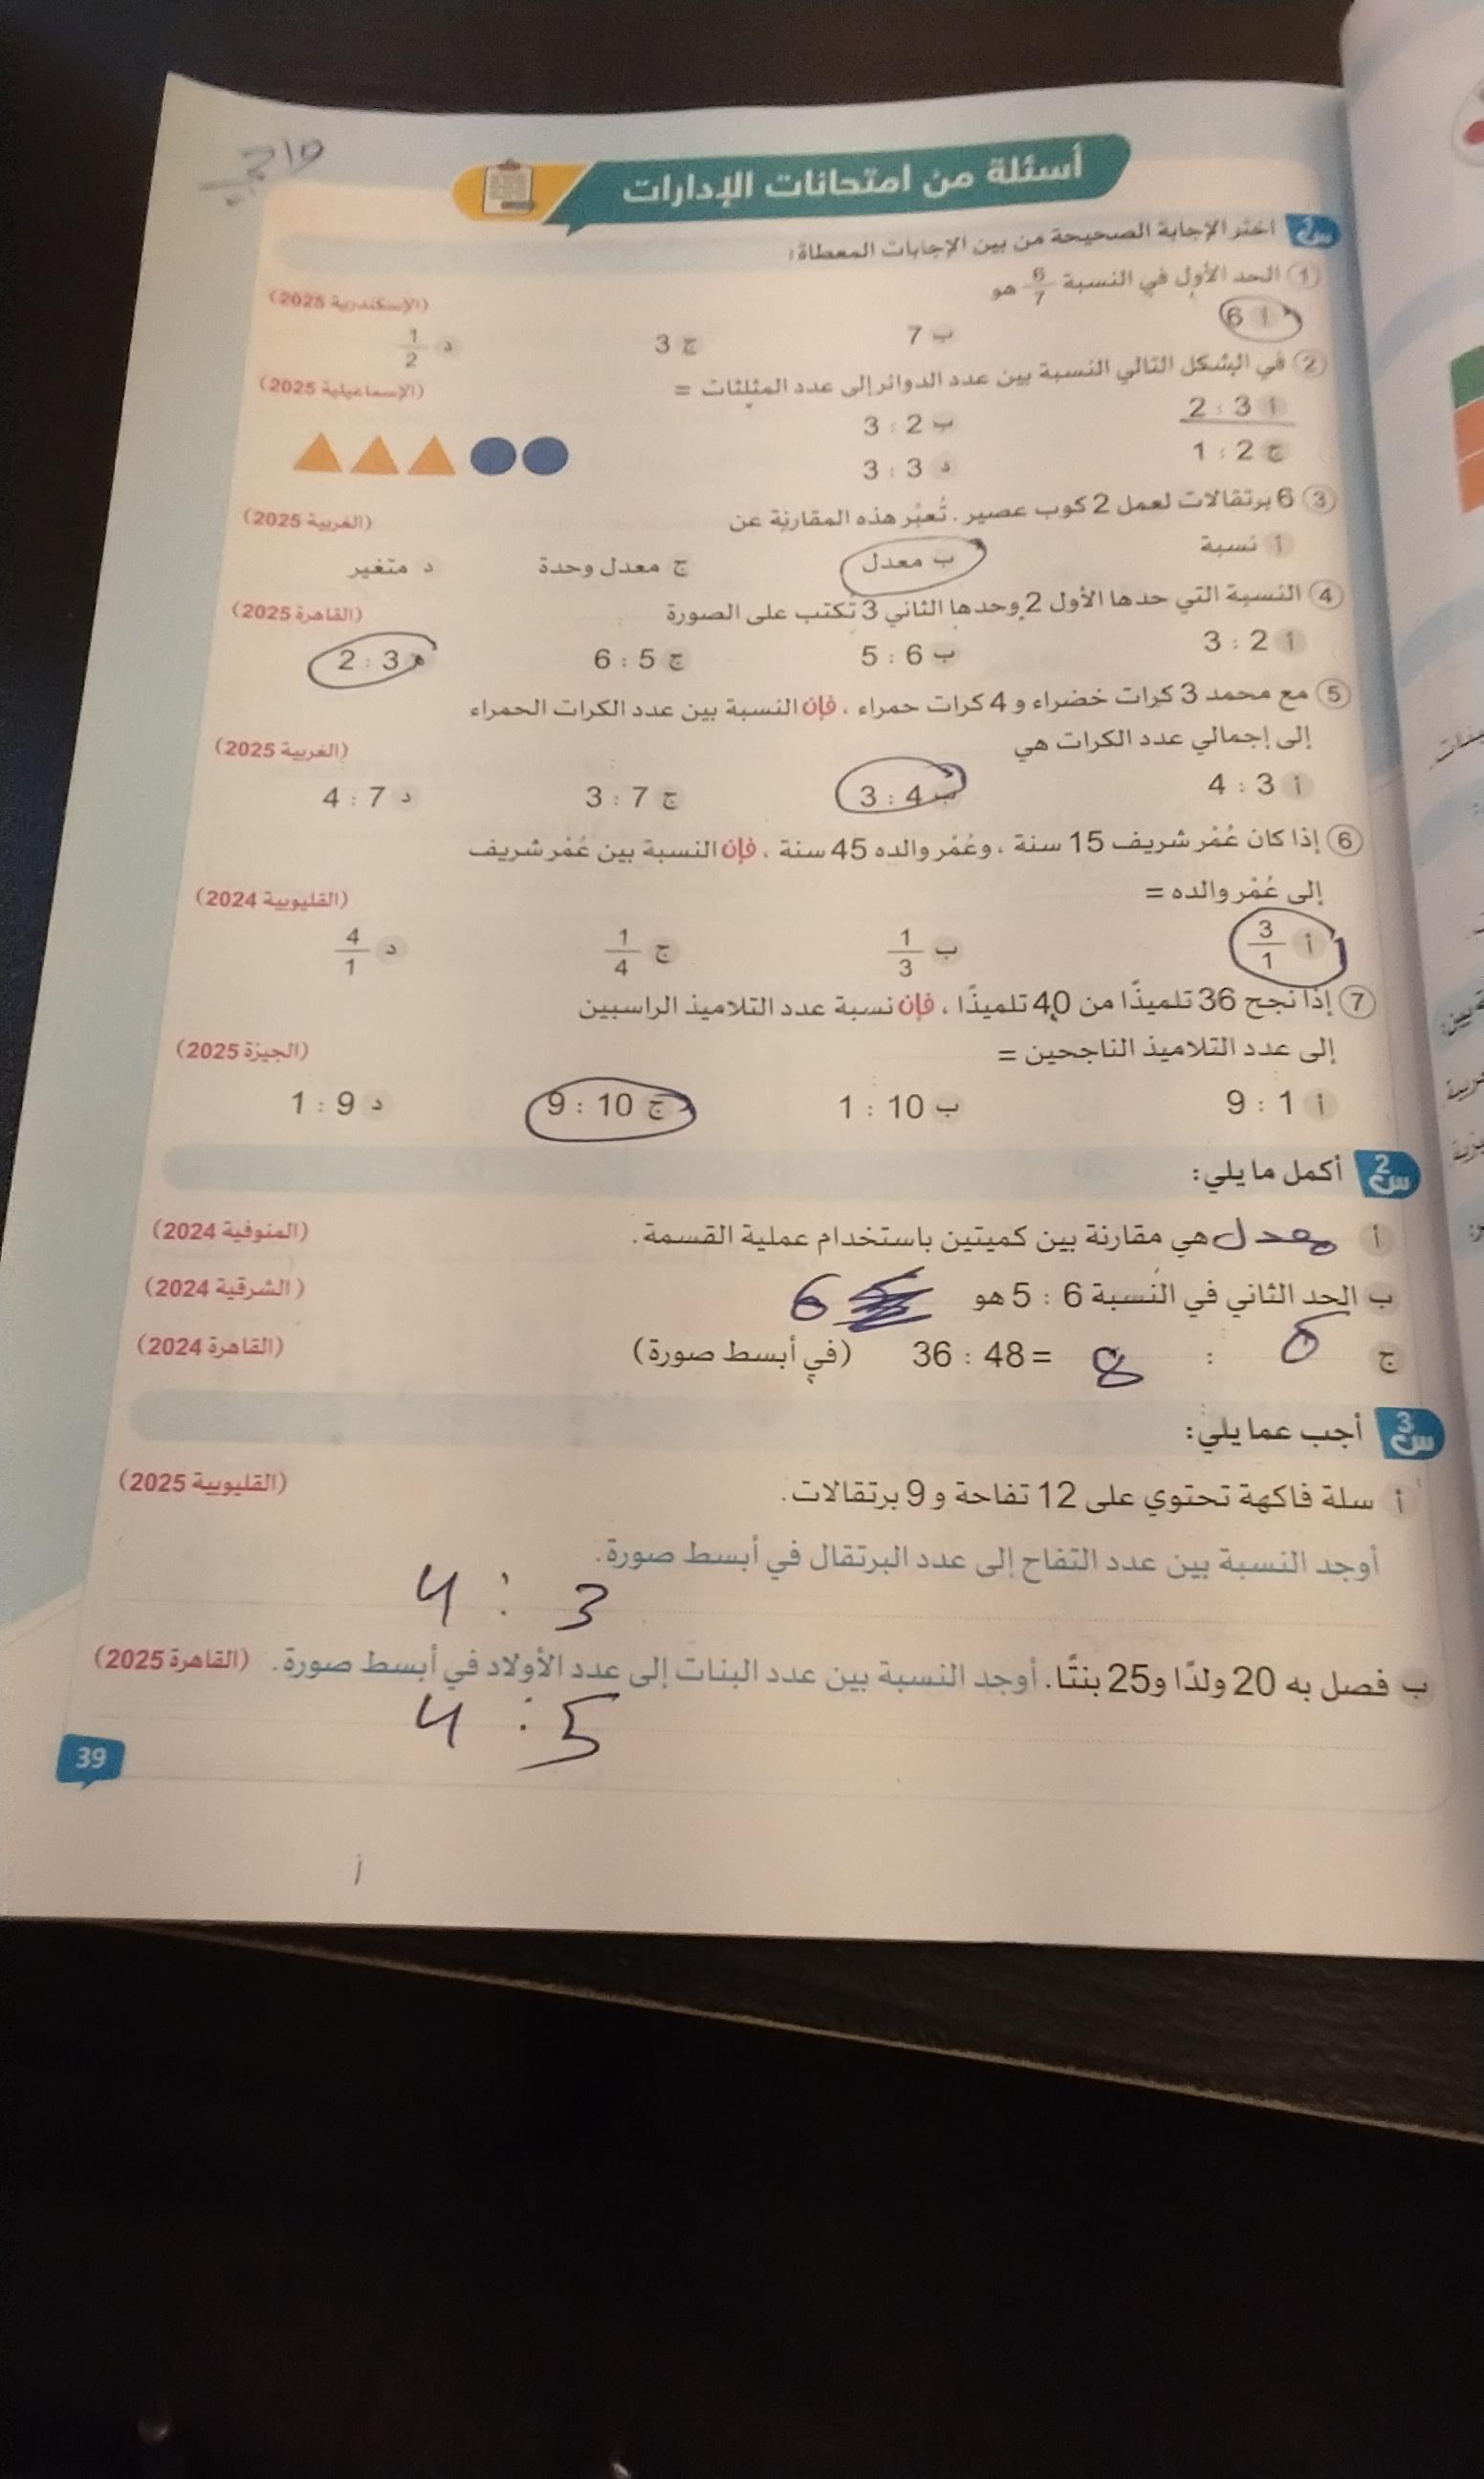 أسئلة من امتحانات الإدارات
س1 اختر الإجابة الصحيحة من بين الإجابات المعطاة:
1 الحد الأول في النسبة 6/7 هو (الإسكندرية 2025)
أ 6 ب 7 ج 3 د 1/2
2 في الشكل التالي النسبة بين عدد الدوائر إلى عدد المثلثات = (الإسماعيلية 2025)
أ 2 : 3 ب 3 : 2
ج 1 : 2 د 3 : 3
3 6 برتقالات لعمل 2 كوب عصير. تُعبّر هذه المقارنة عن (الغربية 2025)
أ نسبة ب معدل ج معدل وحدة د متغير
4 النسبة التي حدها الأول 2 وحدها الثاني 3 تكتب على الصورة (القاهرة 2025)
أ 3 : 2 ب 5 : 6 ج 6 : 5 د 2 : 3
5 مع محمد 3 كرات خضراء و 4 كرات حمراء ، فإن النسبة بين عدد الكرات الحمراء
إلى إجمالي عدد الكرات هي (الغربية 2025)
أ 4 : 3 ب 3 : 4 ج 3 : 7 د 4 : 7
6 إذا كان عُمْر شريف 15 سنة ، وعُمْر والده 45 سنة ، فإن النسبة بين عُمْر شريف
إلى عُمْر والده = (القليوبية 2024)
أ 3/1 ب 1/3 ج 1/4 د 4/1
7 إذا نجح 36 تلميذًا من 40 تلميذًا ، فإن نسبة عدد التلاميذ الراسبين
إلى عدد التلاميذ الناجحين = (الجيزة 2025)
أ 9 : 1 ب 1 : 10 ج 9 : 10 د 1 : 9
س2 أكمل ما يلي:
أ معدل هي مقارنة بين كميتين باستخدام عملية القسمة. (المنوفية 2024)
ب الحد الثاني في النسبة 5 : 6 هو 6 (الشرقية 2024)
ج 6 : 8 = 36 : 48 (في أبسط صورة) (القاهرة 2024)
س3 أجب عما يلي:
أ سلة فاكهة تحتوي على 12 تفاحة و 9 برتقالات. (القليوبية 2025)
أوجد النسبة بين عدد التفاح إلى عدد البرتقال في أبسط صورة.
4 : 3
ب فصل به 20 ولدًا و25 بنتًا. أوجد النسبة بين عدد البنات إلى عدد الأولاد في أبسط صورة. (القاهرة 2025)
4 : 5
39
أ